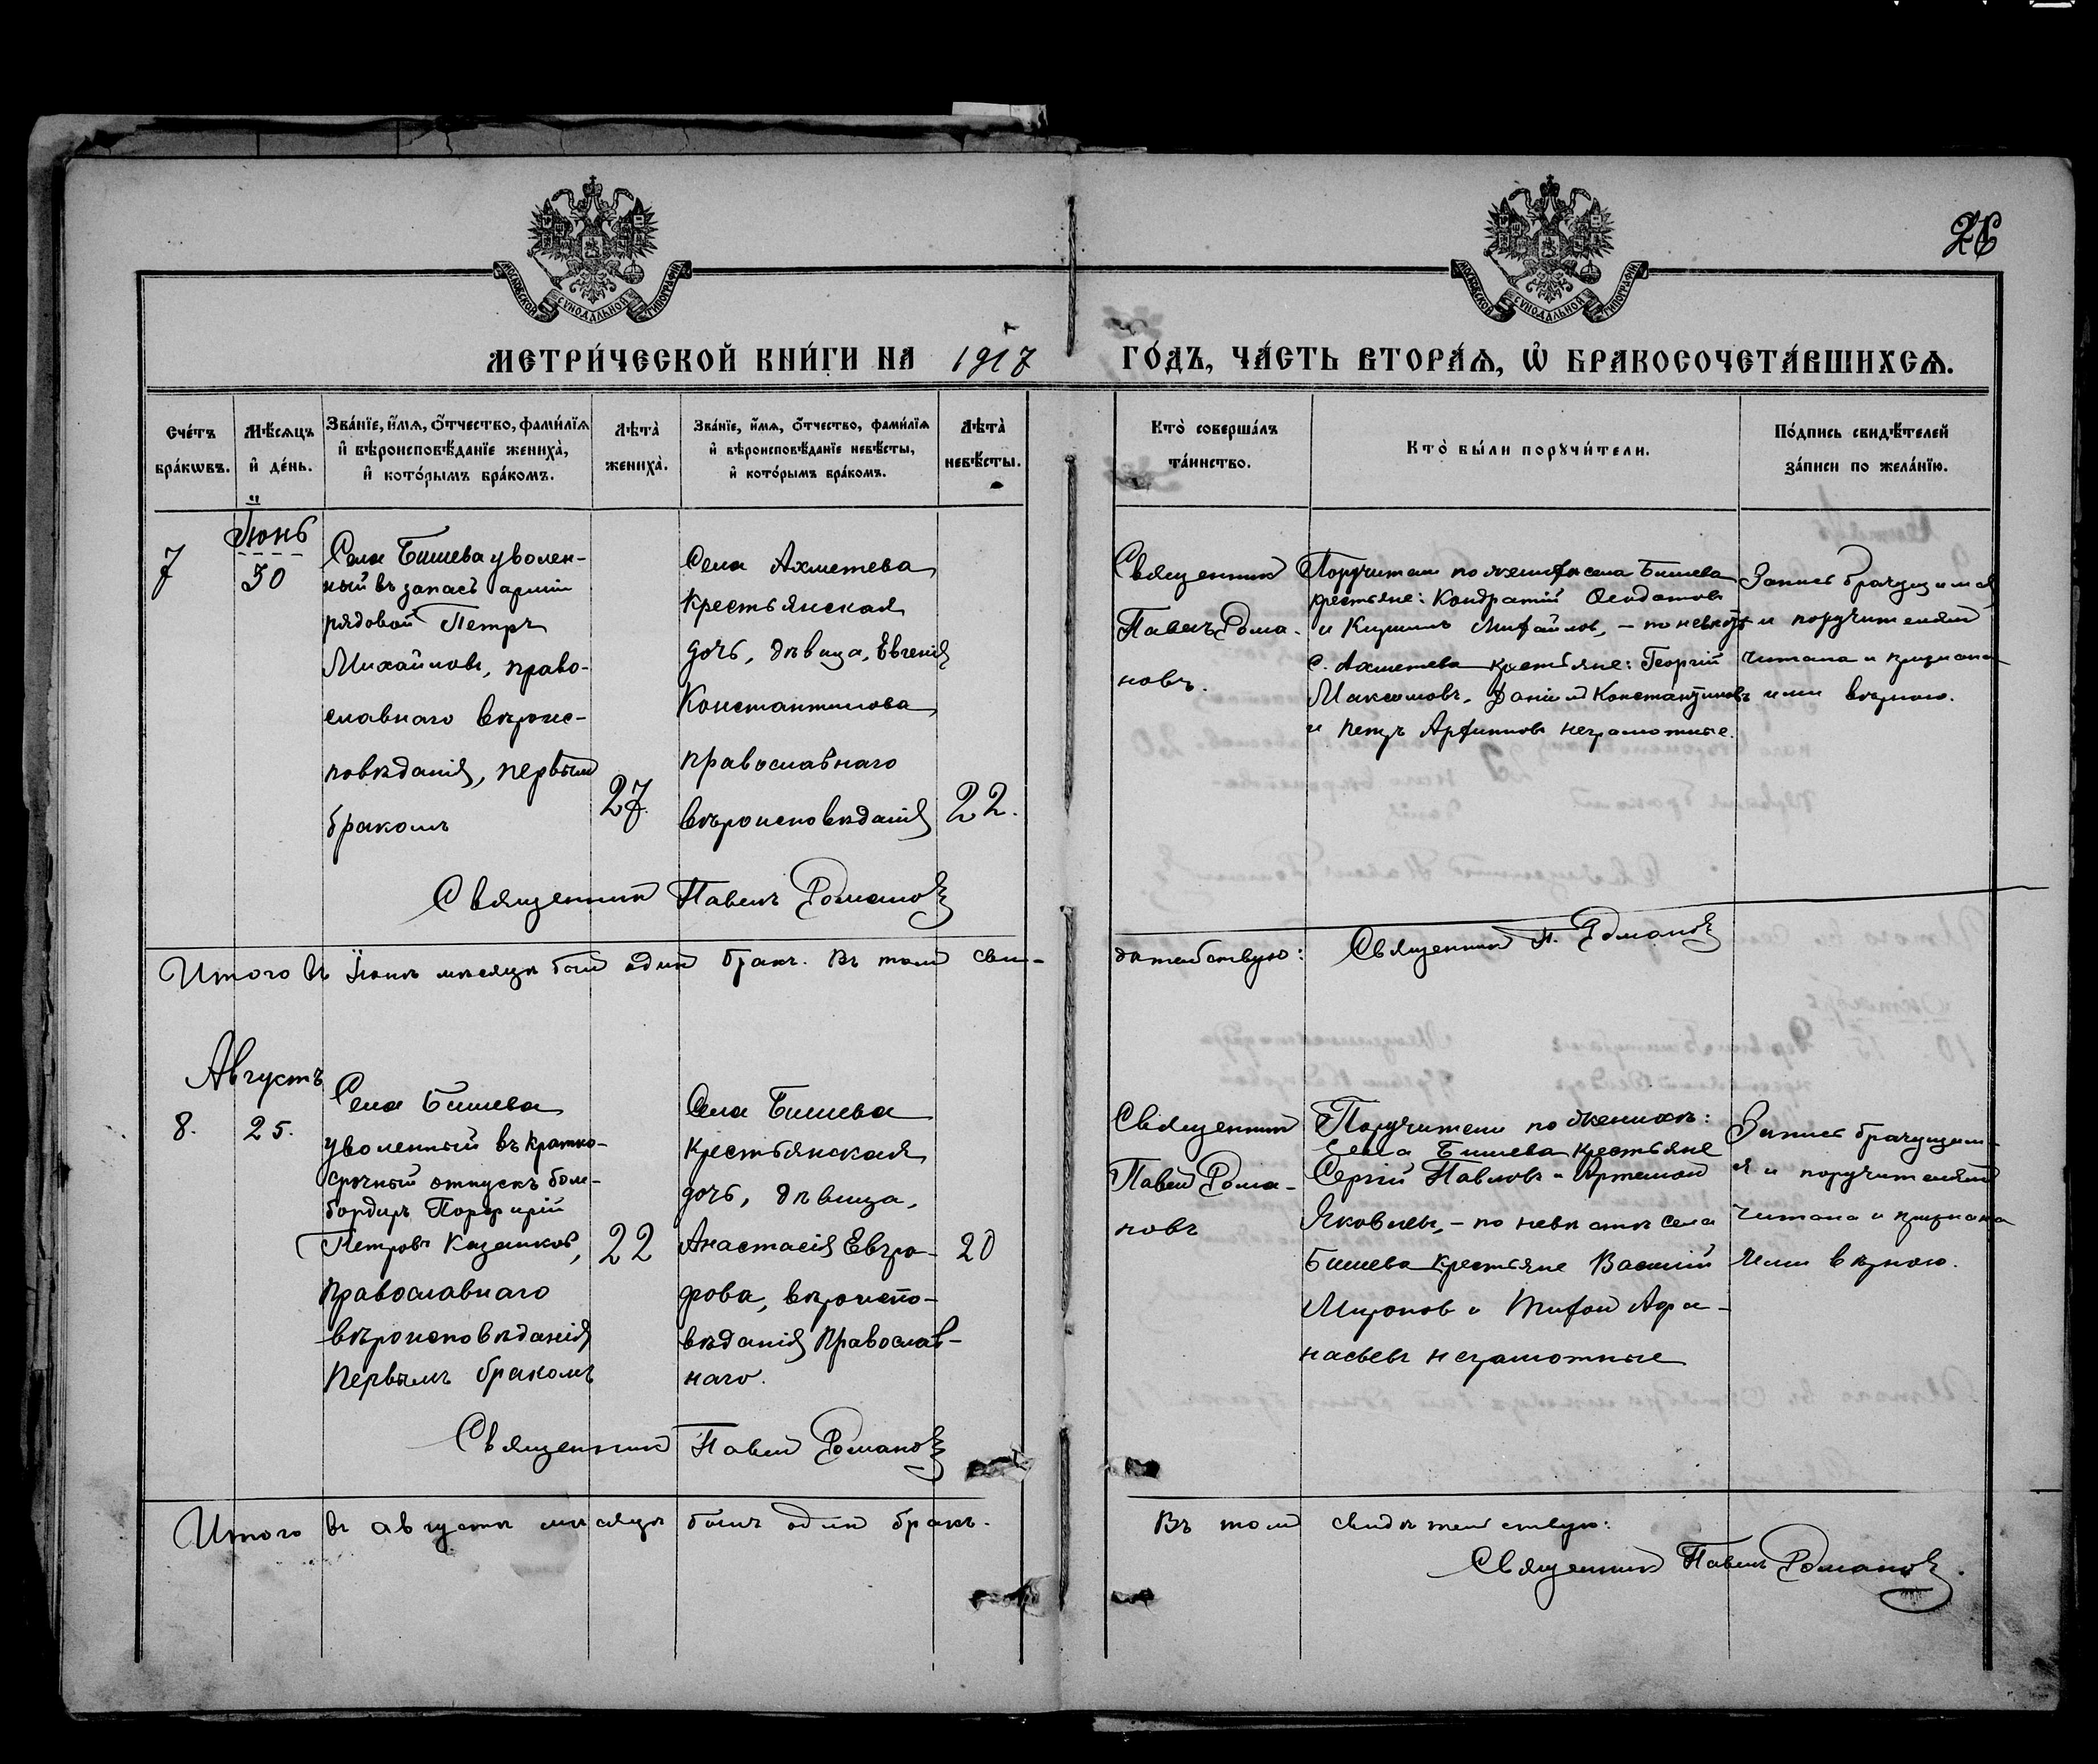 26
МОСКОВСКОЙ СѴНОДАЛЬНОЙ ТИПОГРАФІИ
МОСКОВСКОЙ СѴНОДАЛЬНОЙ ТИПОГРАФІИ
МЕТРИ́ЧЕСКОЙ КНИ́ГИ НА 1917 ГО́ДЪ, ЧА́СТЬ ВТОРА́Я, Ѡ҆ БРАКОСОЧЕТА́ВШИХСѦ.
Сче́тъ
бра́кѡвъ.
Мѣ́сѧцъ
и҆ де́нь.
Зва́нїе, и҆́мѧ, ѻ҆́тчество, фами́лїѧ
и҆ вѣроисповѣ́данїе жениха̀,
и҆ кото́рымъ бра́комъ.
Лѣта̀
жениха̀.
Зва́нїе, и҆́мѧ, ѻ҆́тчество, фами́лїѧ
и҆ вѣроисповѣ́данїе невѣ́сты,
и҆ кото́рымъ бра́комъ.
Лѣта̀
невѣ́сты.
Кто̀ соверша́лъ
та́инство.
Кто̀ бы́ли порꙋчи́тели.
По́дпись свидѣ́телей
за́писи по жела́нїю.
7
Іюнь
30
Села Бишева уволен-
ный въ запасъ арміи
рядовой Петръ
Михайловъ, право-
славнаго вѣроис-
повѣданія, первымъ
бракомъ
27.
Села Ахметева
крестьянская
дочь, дѣвица, Евгенія
Константинова
православнаго
вѣроисповѣданія
22.
Священникъ
Павелъ Рома-
новъ.
Поручители по женихѣ села Бишева
крестьяне: Кондратій Ѳедотовъ
и Кириллъ Михайловъ, – по невѣстѣ
с. Ахметева крестьяне: Георгій
Максимовъ, Даніилъ Константиновъ
и Петръ неграмотные.
Запись брачущимся
и поручителямъ
читана и признана
ими вѣрною.
Священникъ Павелъ Романовъ
Итого въ Іюнѣ мѣсяцѣ былъ одинъ бракъ. Въ томъ сви-
дѣтельствую: Священникъ П. Романовъ
8.
Августъ
25.
Села Бишева
уволенный въ кратко-
срочный отпускъ бом-
бордиръ Порфирій
Петровъ Казанковъ,
православнаго
вѣроисповѣданія
первымъ бракомъ
22
Села Бишева
крестьянская
дочь, дѣвица,
Анастасія Евгра-
фова, вѣроиспо-
вѣданія православ-
наго.
20
Священникъ
Павелъ Рома-
новъ
Поручители по женихѣ:
Села Бишева крестьяне
Сергій Павловъ и Артемій
Яковлевъ, – по невѣстѣ села
Бишева крестьяне Василій
Мироновъ и Тихонъ Афа-
насьевъ неграмотные
Запись брачущим-
ся и поручителямъ
читана и признана
ими вѣрною.
Священникъ Павелъ Романовъ
Итого въ августѣ мѣсяцѣ былъ одинъ бракъ. Въ томъ свидѣтельствую:
Священникъ Павелъ Романовъ.